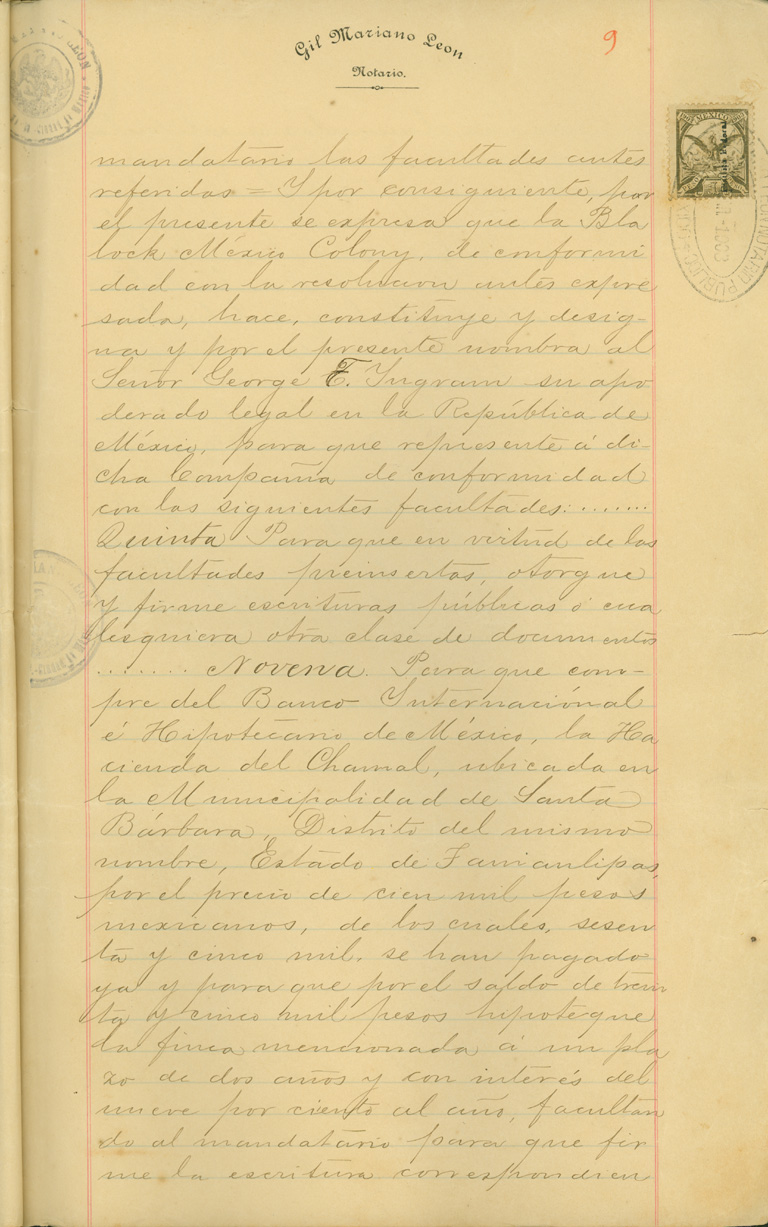 Gil Mariano Leon
Notario.
9
MEXICO
mandatario las facultades antes
referidas = Y por consiguiente, por
el presente se expresa que la Bla
lock México Colony, de conformi
dad con la resolucion antes expre
sada, hace, constituye y desig-
na y por el presente nombra al
Señor George E. Ingram su apo
derado legal en la República de
México, para que represente á di-
cha Compañia de conformidad
con las siguientes facultades:........
Quinta Para que en virtud de las
facultades preinsertas, otorgue
y firme escrituras públicas ó cua
lesquiera otra clase de documentos
........ Novena. Para que com-
pre del Banco Internacional
é Hipotecario de México, la Ha
cienda del Chamal, ubicada en
la Municipalidad de Santa
Bárbara, Distrito del mismo
nombre, Estado de Tamaulipas,
por el precio de cien mil pesos
mexicanos, de los cuales, sesen
ta y cinco mil, se han pagado
ya y para que por el saldo de trein
ta y cinco mil pesos hipoteque
la finca mencionada á un pla
zo de dos años y con interés del
nueve por ciento al año, facultan
do al mandatario para que fir
me la escritura correspondien